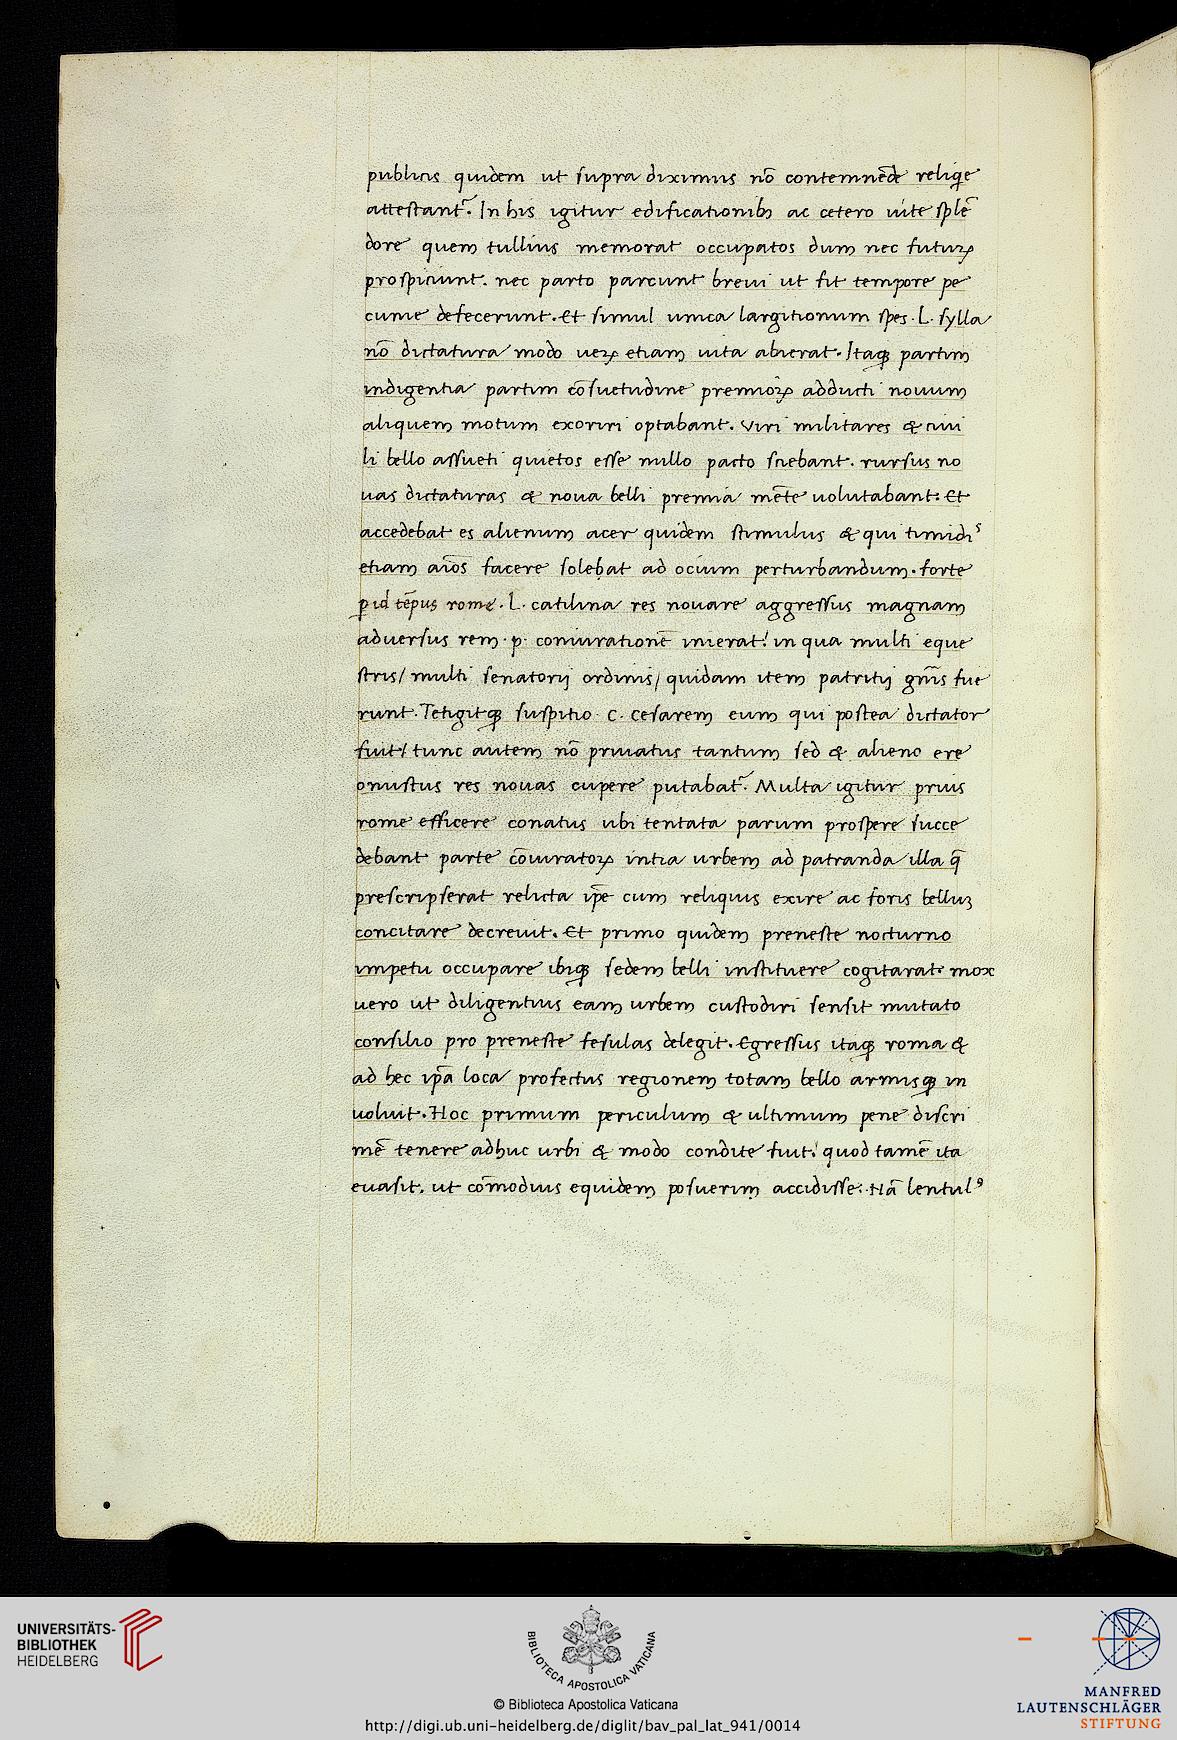 publicis quidem ut supra diximus nō contemnēde reliq̄e
attestant᷑. In his igitur edificationib; ac cetero uite splē
dore quem tullius memorat occupatos dum nec futurꝝ
prospiciunt. nec parto parcunt breui ut fit tempore pe
cunie defecerunt. Et simul unica largitionum spes. L. sylla
nō dictatura modo ueꝝ etiam uita abierat. Itaqꝫ partim
indigentia partim cōsuetudine premioꝝ adducti nouum
aliquem motum exoriri optabant. Viri militares & ciui
li bello assueti quietos esse nullo pacto sciebant. rursus no
uas dictaturas & noua belli premia mēte uolutabant. Et
accedebat es alienum acer quidem stimulus & qui timidiˢ
etiam aīos facere solebat ad ocium perturbandum. forte
ꝑ id tēpus rome. L. catilina res nouare aggressus magnam
aduersus rem. p. coniurationē inierat: in qua multi eque
stris/ multi senatorij ordinis/ quidam item patritij gn̄is fue
runt. Tetigitqꝫ suspitio. C. cesarem eum qui postea dictator
fuit/ tunc autem nō priuatus tantum sed & alieno ere
onustus res nouas cupere putabat᷑. Multa igitur prius
rome efficere conatus ubi tentata parum prospere succe
debant parte cōiuratoꝝ intra urbem ad patranda illa q̄
prescripserat relicta ip̄e cum reliquis exire ac foris belluꝫ
concitare decreuit. Et primo quidem preneste nocturno
impetu occupare ibiqꝫ sedem belli instituere cogitarat. mox
uero ut diligentius eam urbem custodiri sensit mutato
consilio pro preneste fesulas delegit. Egressus itaqꝫ roma &
ad hec ip̄a loca profectus regionem totam bello armisqꝫ in
uoluit. Hoc primum periculum & ultimum pene discri
mē tenere adhuc urbi & modo condite fuit: quod tamē ita
euasit. ut cōmodius equidem posuerim accidisse. Nā lentulꝰ
UNIVERSITÄTS-
BIBLIOTHEK
HEIDELBERG
BIBLIOTECA APOSTOLICA VATICANA
© Biblioteca Apostolica Vaticana
http://digi.ub.uni-heidelberg.de/diglit/bav_pal_lat_941/0014
MANFRED
LAUTENSCHLÄGER
STIFTUNG